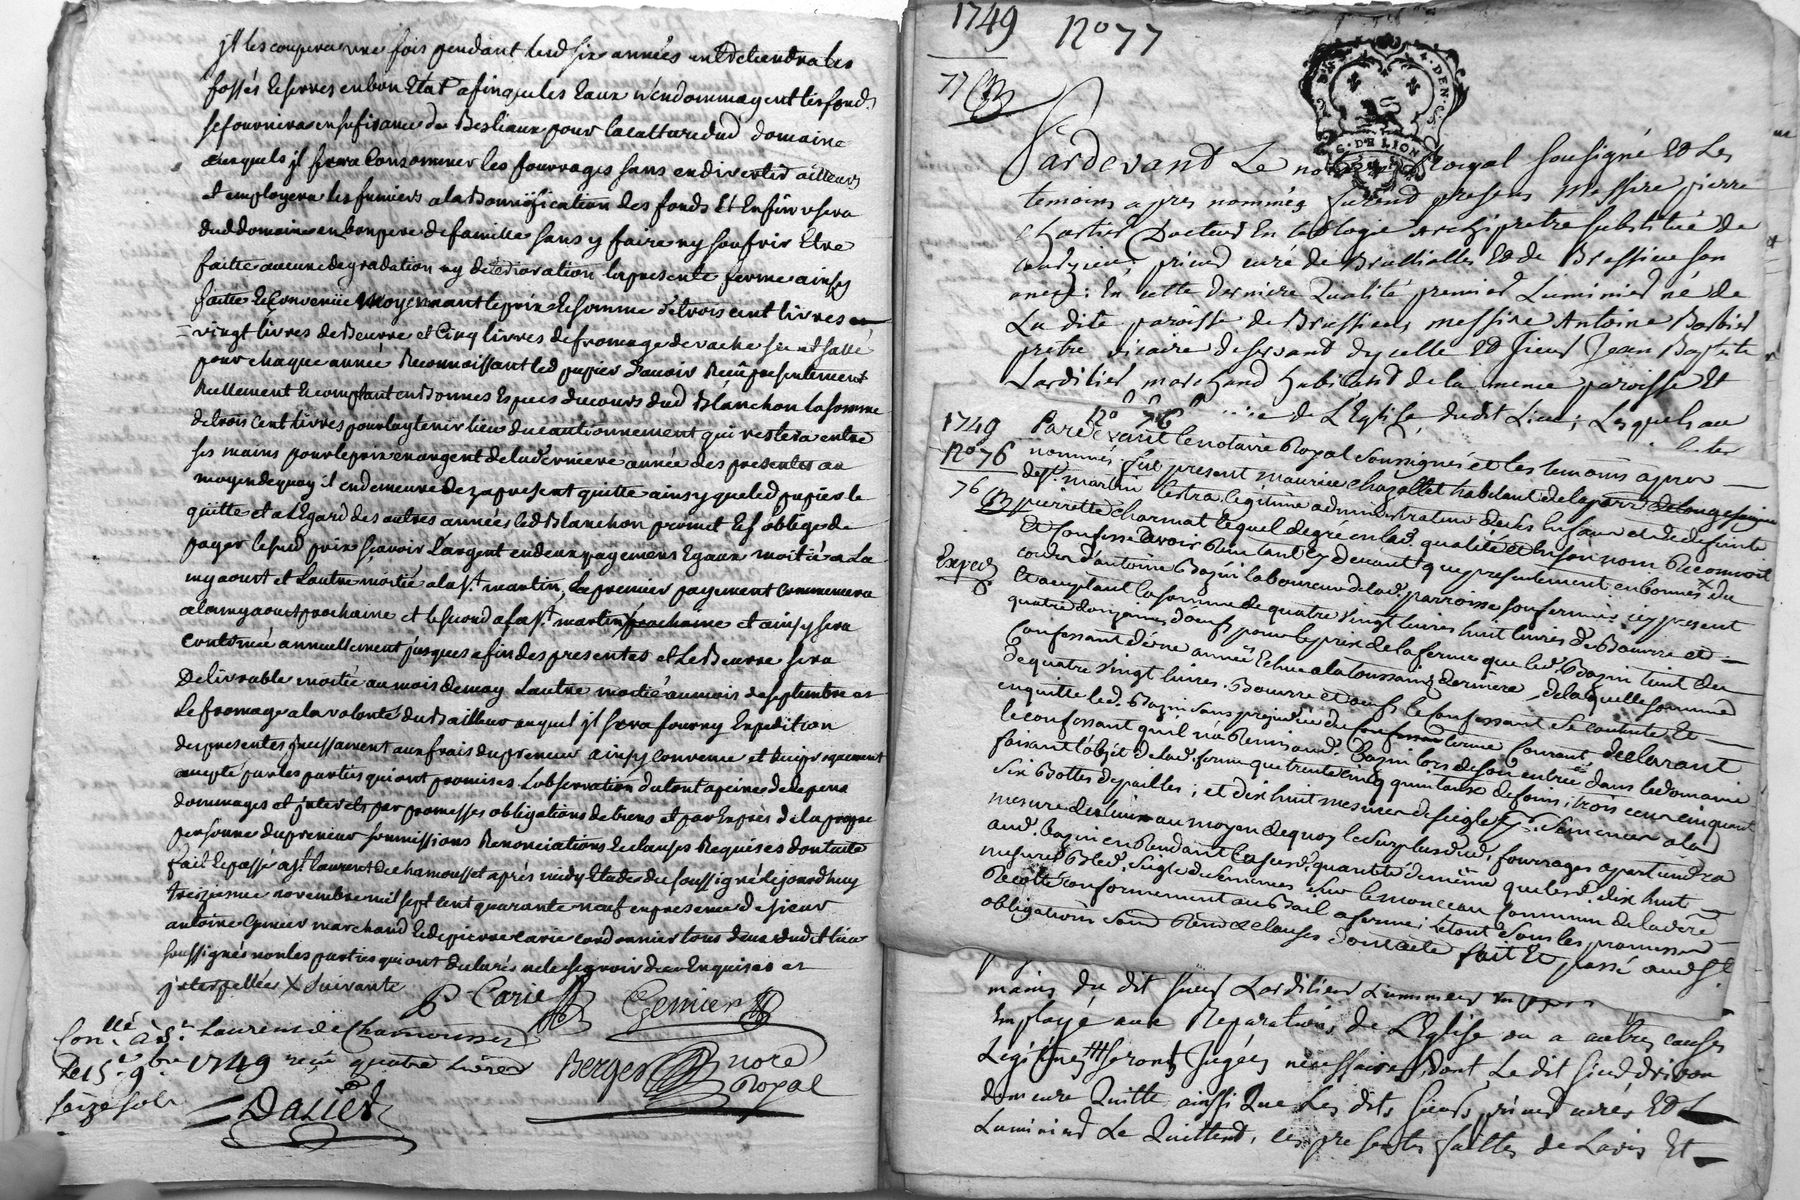 jl les coupera une fois pendant lesd. six années entretiendra les
fossés et serves en bon Etat afin que les Eaux n'endommagent les fonds
se fournira en sufisance de Bestiaux pour la culture dud. domaine
auxquels jl fera Consommer les fourrages sans en divertir ailleurs
et employera les fumiers a la Bonnification des fonds Et Enfin usera
dud domaine en bon pere de famille sans y faire ny soufrir Etre
faitte aucune degradation ny deterioration la presente ferme ainsy
faitte et Convenüe Moyennant le prix et somme de trois cent livres
vingt livres de Beurre et Cinq livres de fromage de vache sec et sallé
pour chaque année Reconnaissant led papier d'avoir Reçu presentement
Reellement et comptant en Bonnes Especes du cours dud Blanchon la somme
de trois cent livres pour luy tenir lieu de cautionnement qui restera entre
ses mains pour le prix en argent de la derniere année des presentes au
moyen de quoy il en demeure dez a present quitte ainsy que led papier le
quitte et a l'Egard des autres années led Blanchon promet et s'oblige de
payer le sud prix sçavoir l'argent en deux payemens Egaux moitié a la
my aoust et l'autre moitié a la st. martin, le premier payement commencera
a la my aoust prochaine et le second a la st. martin prochaine et ainsy sera
continué annuellement jusques a fin des presentes et le Beurre sera
Delivrable moitié au mois de may l'autre moitié au mois de septembre et
le fromage a la volonté du Bailleur auquel jl sera fourny Expedition
des presentes jncessament aux frais du preneur ainsy convenu et reciproquement
accepté par les parties qui ont promises l'observation du tout a peine de depens
dommages et jnterets par promesses obligations de biens et par Exprès de la propre
personne du preneur soumissions Renonciations et clauses Requises dont acte
fait et passé a st. laurent de chamousset après midy Etude du soussigné cejourdhuy
treizieme novembre mil sept cent quarante neuf en presence de sieur
antoine Genier marchand et de pierre Carie cordonnier tous deux dudit lieu
soussignés non les parties qui ont declarés ne le sçavoir de ce Enquises et
jnterpellées X suivante
P Carie Genier
Con.llé à St. Laurens de Chamousset
le 15e 9bre 1749 reçu quatre livres
seize sols
Dalier
Berger nore
Royal
1749 No 77
77
G. DE LION
Pardevant Le notaire Royal sousigné Et Les
temoins apres nommés furent presens Messire pierre
Chartier Docteur En teologie Archipretre substitué de
prieur curé de Brullialles Et de Brussieu son
anexe; En cette derniere Qualité premier Luminier né de
La dite paroisse de Brussieu, messire Antoine Barbier
pretre vicaire desservant dycelle Et sieur Jean Baptiste
Lardilier marchand habitant de la meme paroisse Et
de L'Eglise dudit Lieu; Lesquels au
1749 No 76
No 76
76
Exped.
Pardevant le notaire Royal soussigné et les temoins apres
nommés fut present maurice chazollet habitant de la parr. de longessaigne
dept. martin lestra legitime administrateur de ses enfans et de defunte
pierrette charmat lequel de gré en lad. qualité et en son nom Reconnoit
Et Confesse avoir Reçu tant cy devant que presentement en bonnes X du
cours d'antoine Bazin laboureur de lad. parroisse son fermier icy present
Et acceptant la somme de quatre vingt livres huit livres de Beurre et
quatre douzaines d'oeufs pour le prix de la ferme que led. Bazin tient du
Confessant d'une année Echue a la toussaint derniere, de laquelle somme
de quatre vingt livres. Beurre et oeufs le Confessant se contente Et
en quitte led. Bazin sans prejudice du terme Courant declarant
le confessant qu'il n'a Remis aud. Bazin lors de son entrée dans le domaine
faisant l'objet de lad. ferme que trente cinq quintaux de foins; trois cent cinquante
six Bottes de pailles; et dix huit mesures de seigle semences a la
mesure au moyen de quoy le surplus desd. fourrages apartiendra
aud. Bazin en Rendant la susd. quantité de même que lesd. dix huit
mesures Bled seigle de semences sur le monceau Commun de la dere.
Recolte conformement au Bail a ferme; le tout sous les promesses
obligations sound. Renon. et clauses dont acte fait Et passé aud. St.
mains du dit sieur Lardilier Luminier
Employé aux Reparations de L'Eglise ou a autres causes
Legitimes seront Jugées necessaires, dont Le dit sieur drivon
demeure Quitte ainsi Que Les dits sieurs prieur curés Et
Luminier Le Quittent, les presentes faittes de Lavis Et